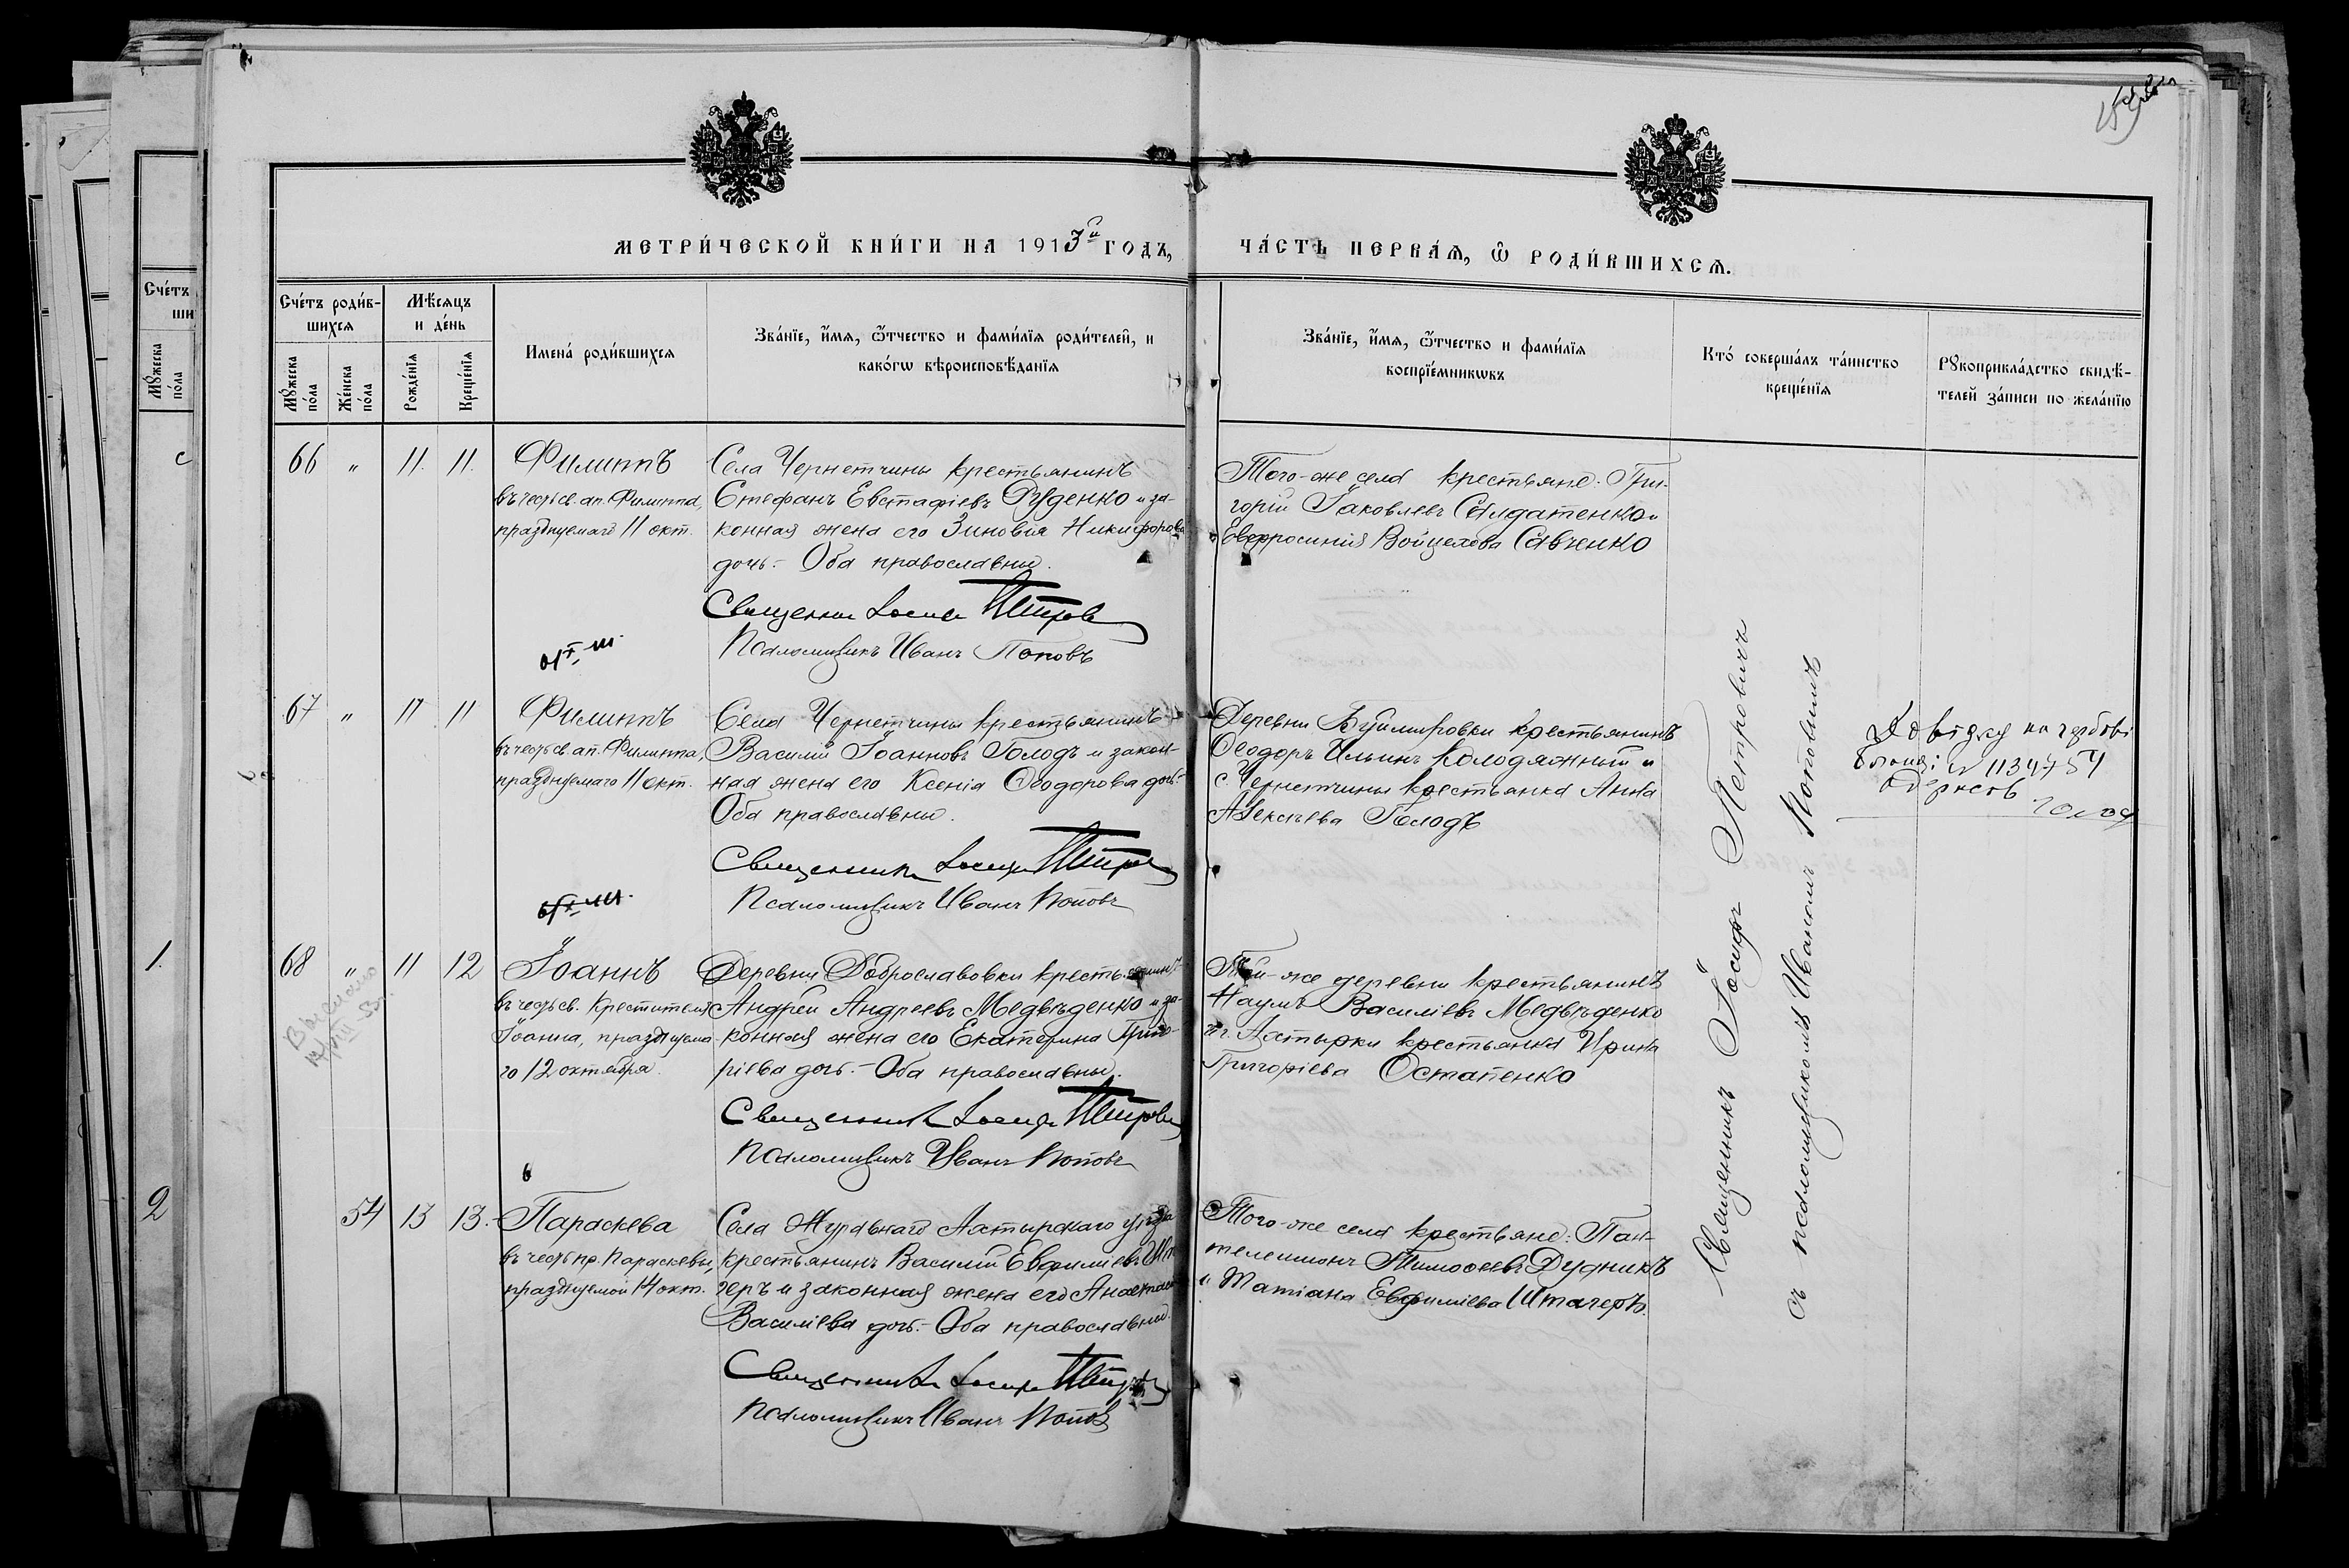 МЕТРИ́ЧЕСКОЙ КНИ́ГИ НА 1913й ГОДЪ,
ЧА́СТЬ ПЕРВА́Ѧ, Ѽ РОДИ́ВШИХСѦ.
Сче́тъ роди́в-
шихсѧ
Мѣ́сѧцъ
и де́нь
Мꙋ́жеска
по́ла
Же́нска
по́ла
Рожде́нїѧ
Креще́нїѧ
Имена́ роди́вшихсѧ
Зва́нїе, и҆́мѧ, ѻ҆́тчество и фами́лїѧ роди́телей, и
како́гѡ вѣроисповѣ́данїѧ
Зва́нїе, и҆́мѧ, ѻ҆́тчество и фами́лїѧ
воспрїе́мникѡвъ
Кто́ соверша́лъ та́инство
креще́нїѧ
Рꙋкоприкла́дство свидѣ́-
телей за́писи по жела́нїю
Сче́тъ
ши
Мꙋ́жеска
по́ла
66 " 11. 11.
Филиппъ
въ честь св. ап. Филиппа,
празднуемаго 11 окт.
Села Чернетчины крестьянинъ
Стефанъ Евстафіевъ Руденко и за-
конная жена его Зиновія Никифорова
дочь.- Оба православны.
Священник Іосиф Петров
Псаломщикъ Иванъ Поповъ
Того-же села крестьяне: Гри-
горій Іаковлевъ Солдатенко и
Евфросинія Войцехова Савченко
67 " 11 11
Филиппъ
въ честь св. ап. Филиппа,
празднуемаго 11 окт.
Села Чернетчины крестьянинъ
Василій Іоанновъ Голодъ и закон-
ная жена его Ксенія Ѳеодорова дочь.-
Оба православны.
Священник Іосиф
Псаломщикъ Иванъ Поповъ
Деревни Буймировки крестьянинъ
Ѳеодоръ Ильинъ Колодяжный и
с. Чернетчины крестьянка Анна
Алексѣева Голодъ
Довідку на гербові
1134754
одержав
Голод
1.
68 " 11 12
Іоаннъ
въ честь св. Крестителя
Іоанна, празднуема-
го 12 октября.
Деревни Доброславовки крестьянинъ
Андрей Андреевъ Медвѣденко и за-
конная жена его Екатерина Григо-
ріева дочь.- Оба православны.
Священник Іосиф
Псаломщикъ Иванъ Поповъ
Той-же деревни крестьянинъ
Наумъ Василіевъ Медвѣденко
и г. Ахтырки крестьянка Ирина
Григоріева Остапенко
2
54 13 13.
Параскева
въ честь пр. Параскевы,
празднуемой 14 окт.
Села Журавнаго Ахтырскаго уѣзда
крестьянинъ Василій Евфиміевъ Шта-
геръ и законная жена его Анастасія
Василіева дочь.- Оба православны.
Священник Іосиф
Псаломщикъ Иванъ Попов
Того-же села крестьяне: Пан-
телеимонъ Тимоѳеевъ Дудникъ
и Татіана Евфиміева Штагеръ.
Священникъ Іосифъ Петровичъ
съ псаломщикомъ Иваномъ Поповымъ